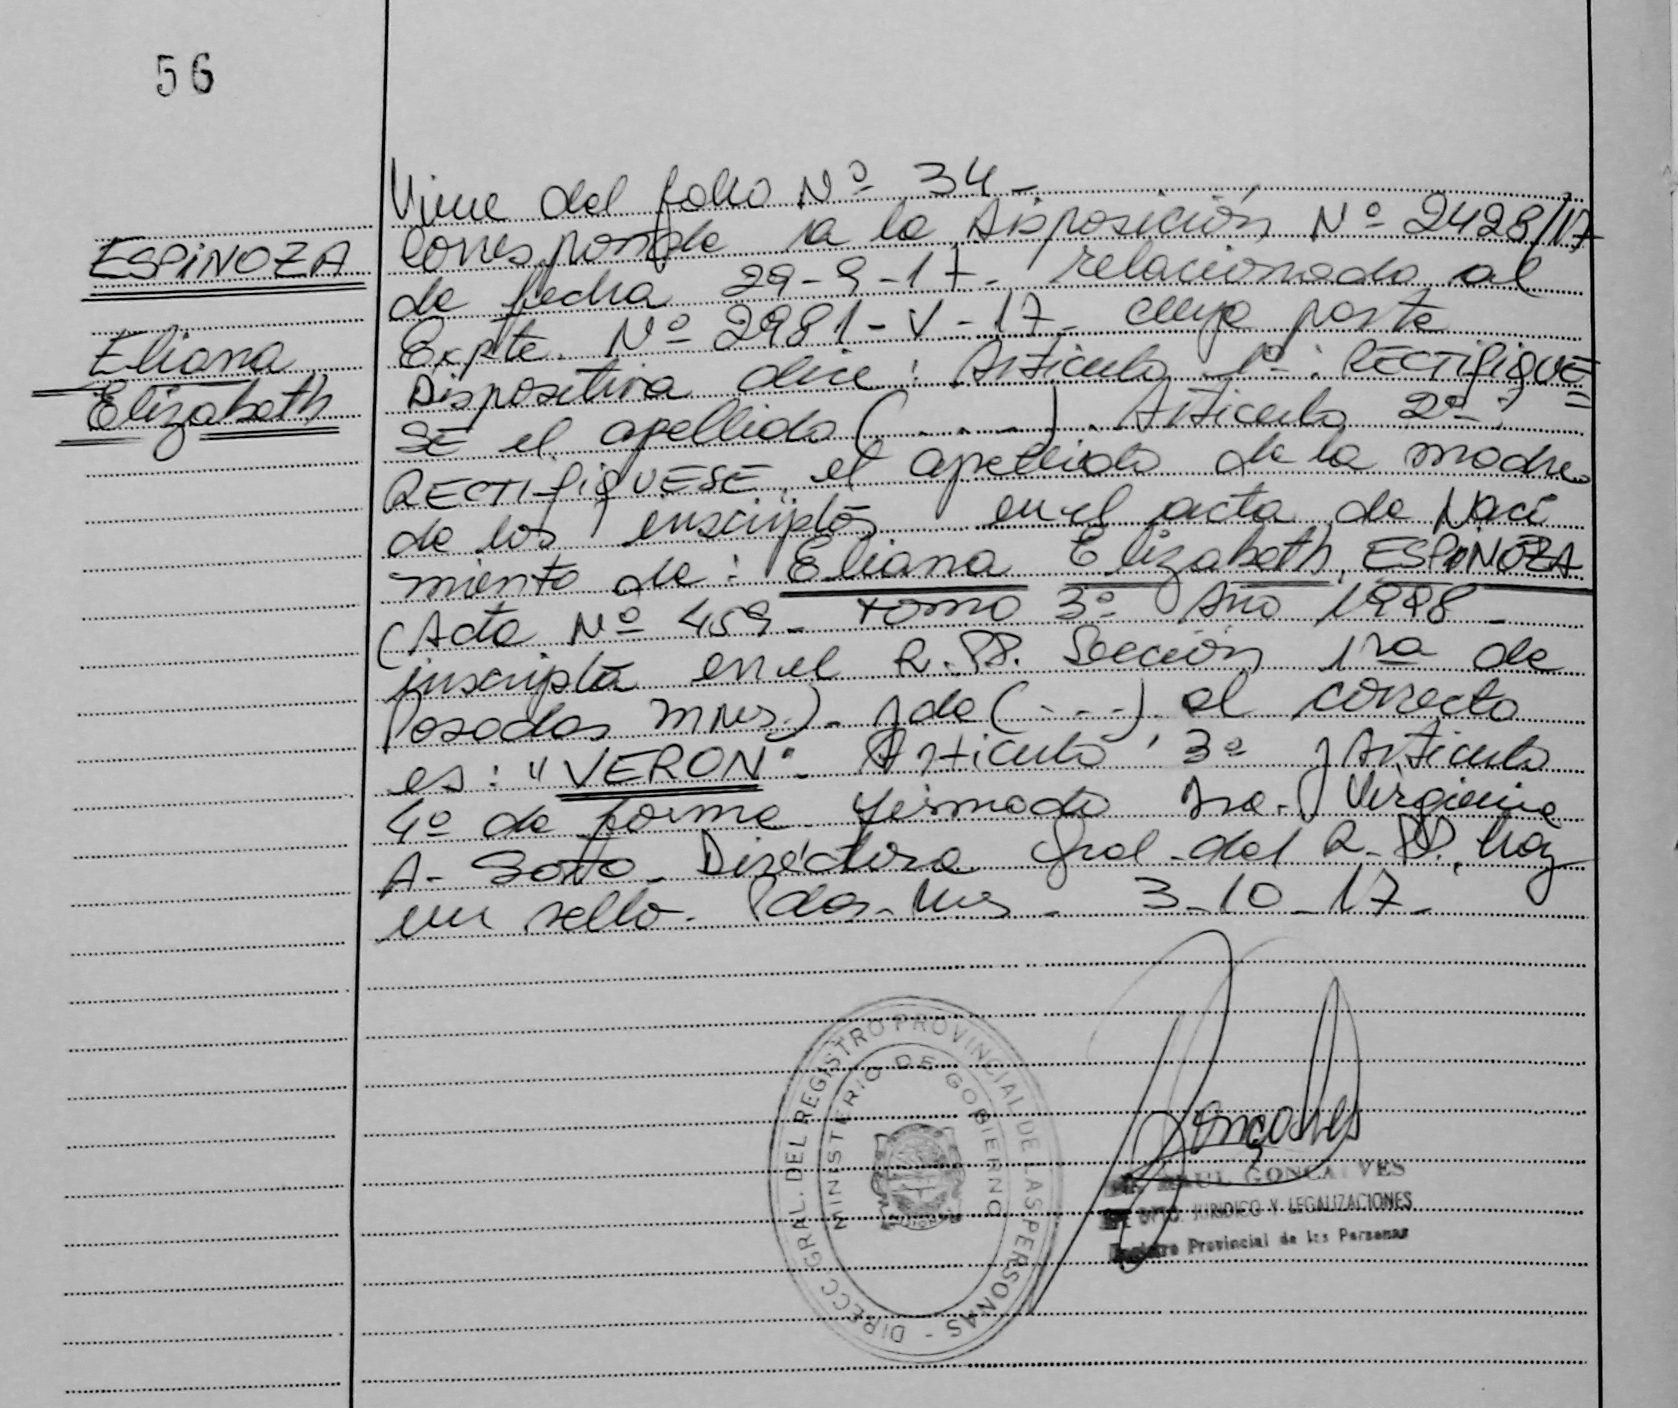 56
ESPINOZA
Eliana
Elizabeth
Viene del folio Nº 34-
Corresponde a la Disposición Nº 2428/17
de fecha 29-9-17- relacionado al
Expte. Nº 2981-V-17- cuya parte
Dispositiva dice: Articulo 1º: RECTIFIQUE
SE el apellido (....). Articulo 2º:
RECTIFIQUESE, el apellido de la madre
de los inscriptos en el acta de Naci
miento de: Eliana Elizabeth ESPINOZA
(Acta Nº 459- tomo 3º Año 1998-
inscripta en el R.PP. Sección 1ra de
Posadas Mnes.)- y de (...) el correcto
es: "VERON"- Articulo 3º y Articulo
4º de forma firmado Sra. Virginia
A- Soto- Directora Gral-del R-PP. hay
un sello- Pdas-Mns- 3-10-17-
DIRECC GRAL. DEL REGISTRO PROVINCIAL DE LAS PERSONAS -
MINISTERIO DE GOBIERNO
Goncalves
RAUL GONCALVES
DPTO. JURIDICO Y LEGALIZACIONES
Registro Provincial de las Personas